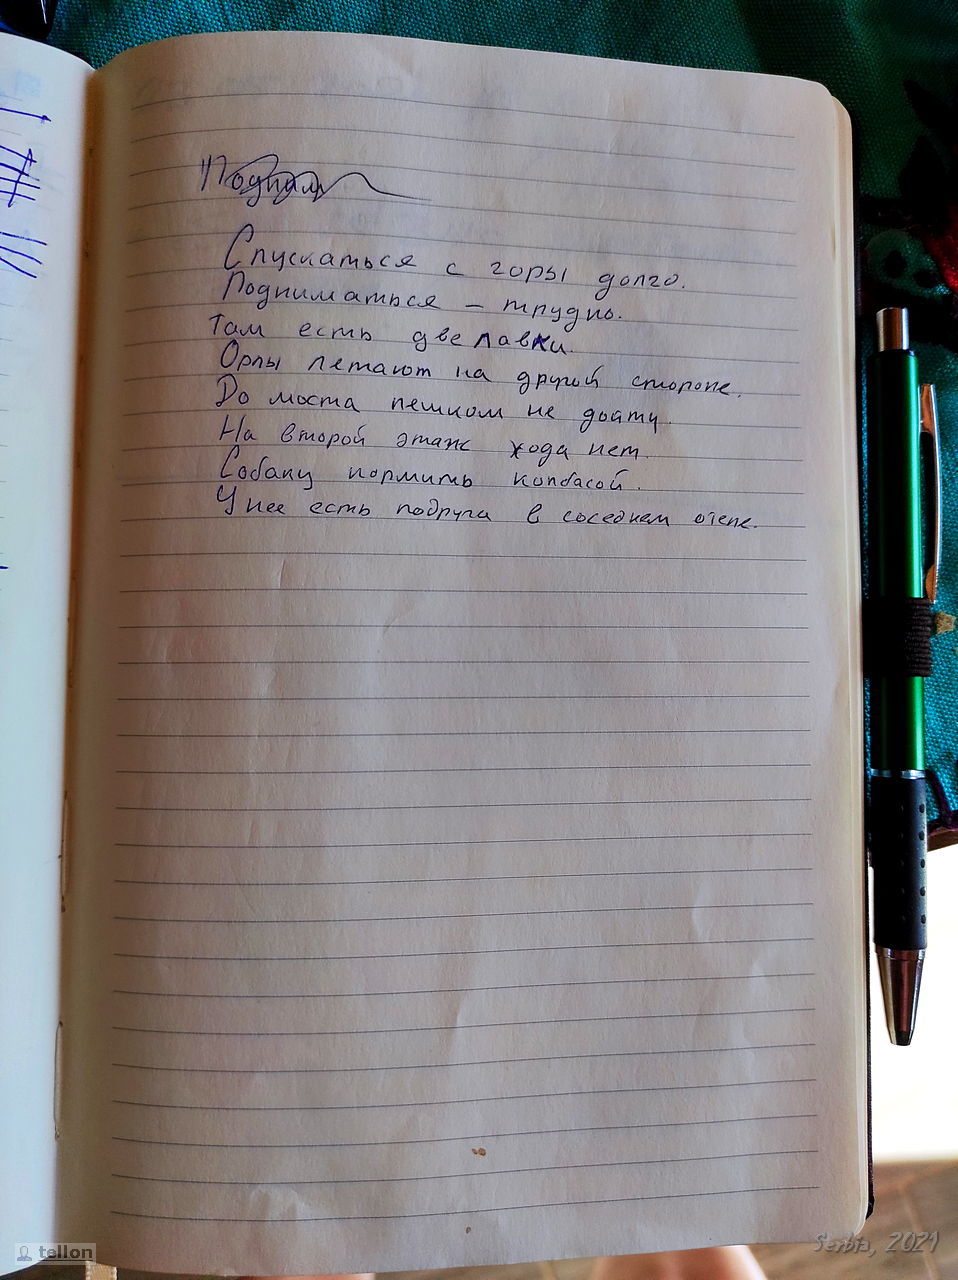 Спускаться с горы долго.
Подниматься – трудно.
Там есть две лавки.
Орлы летают на другой стороне.
До моста пешком не дойти.
На второй этаж хода нет.
Собаку кормить колбасой.
У нее есть подруга в соседнем отеле.
tellon
Serbia, 2021